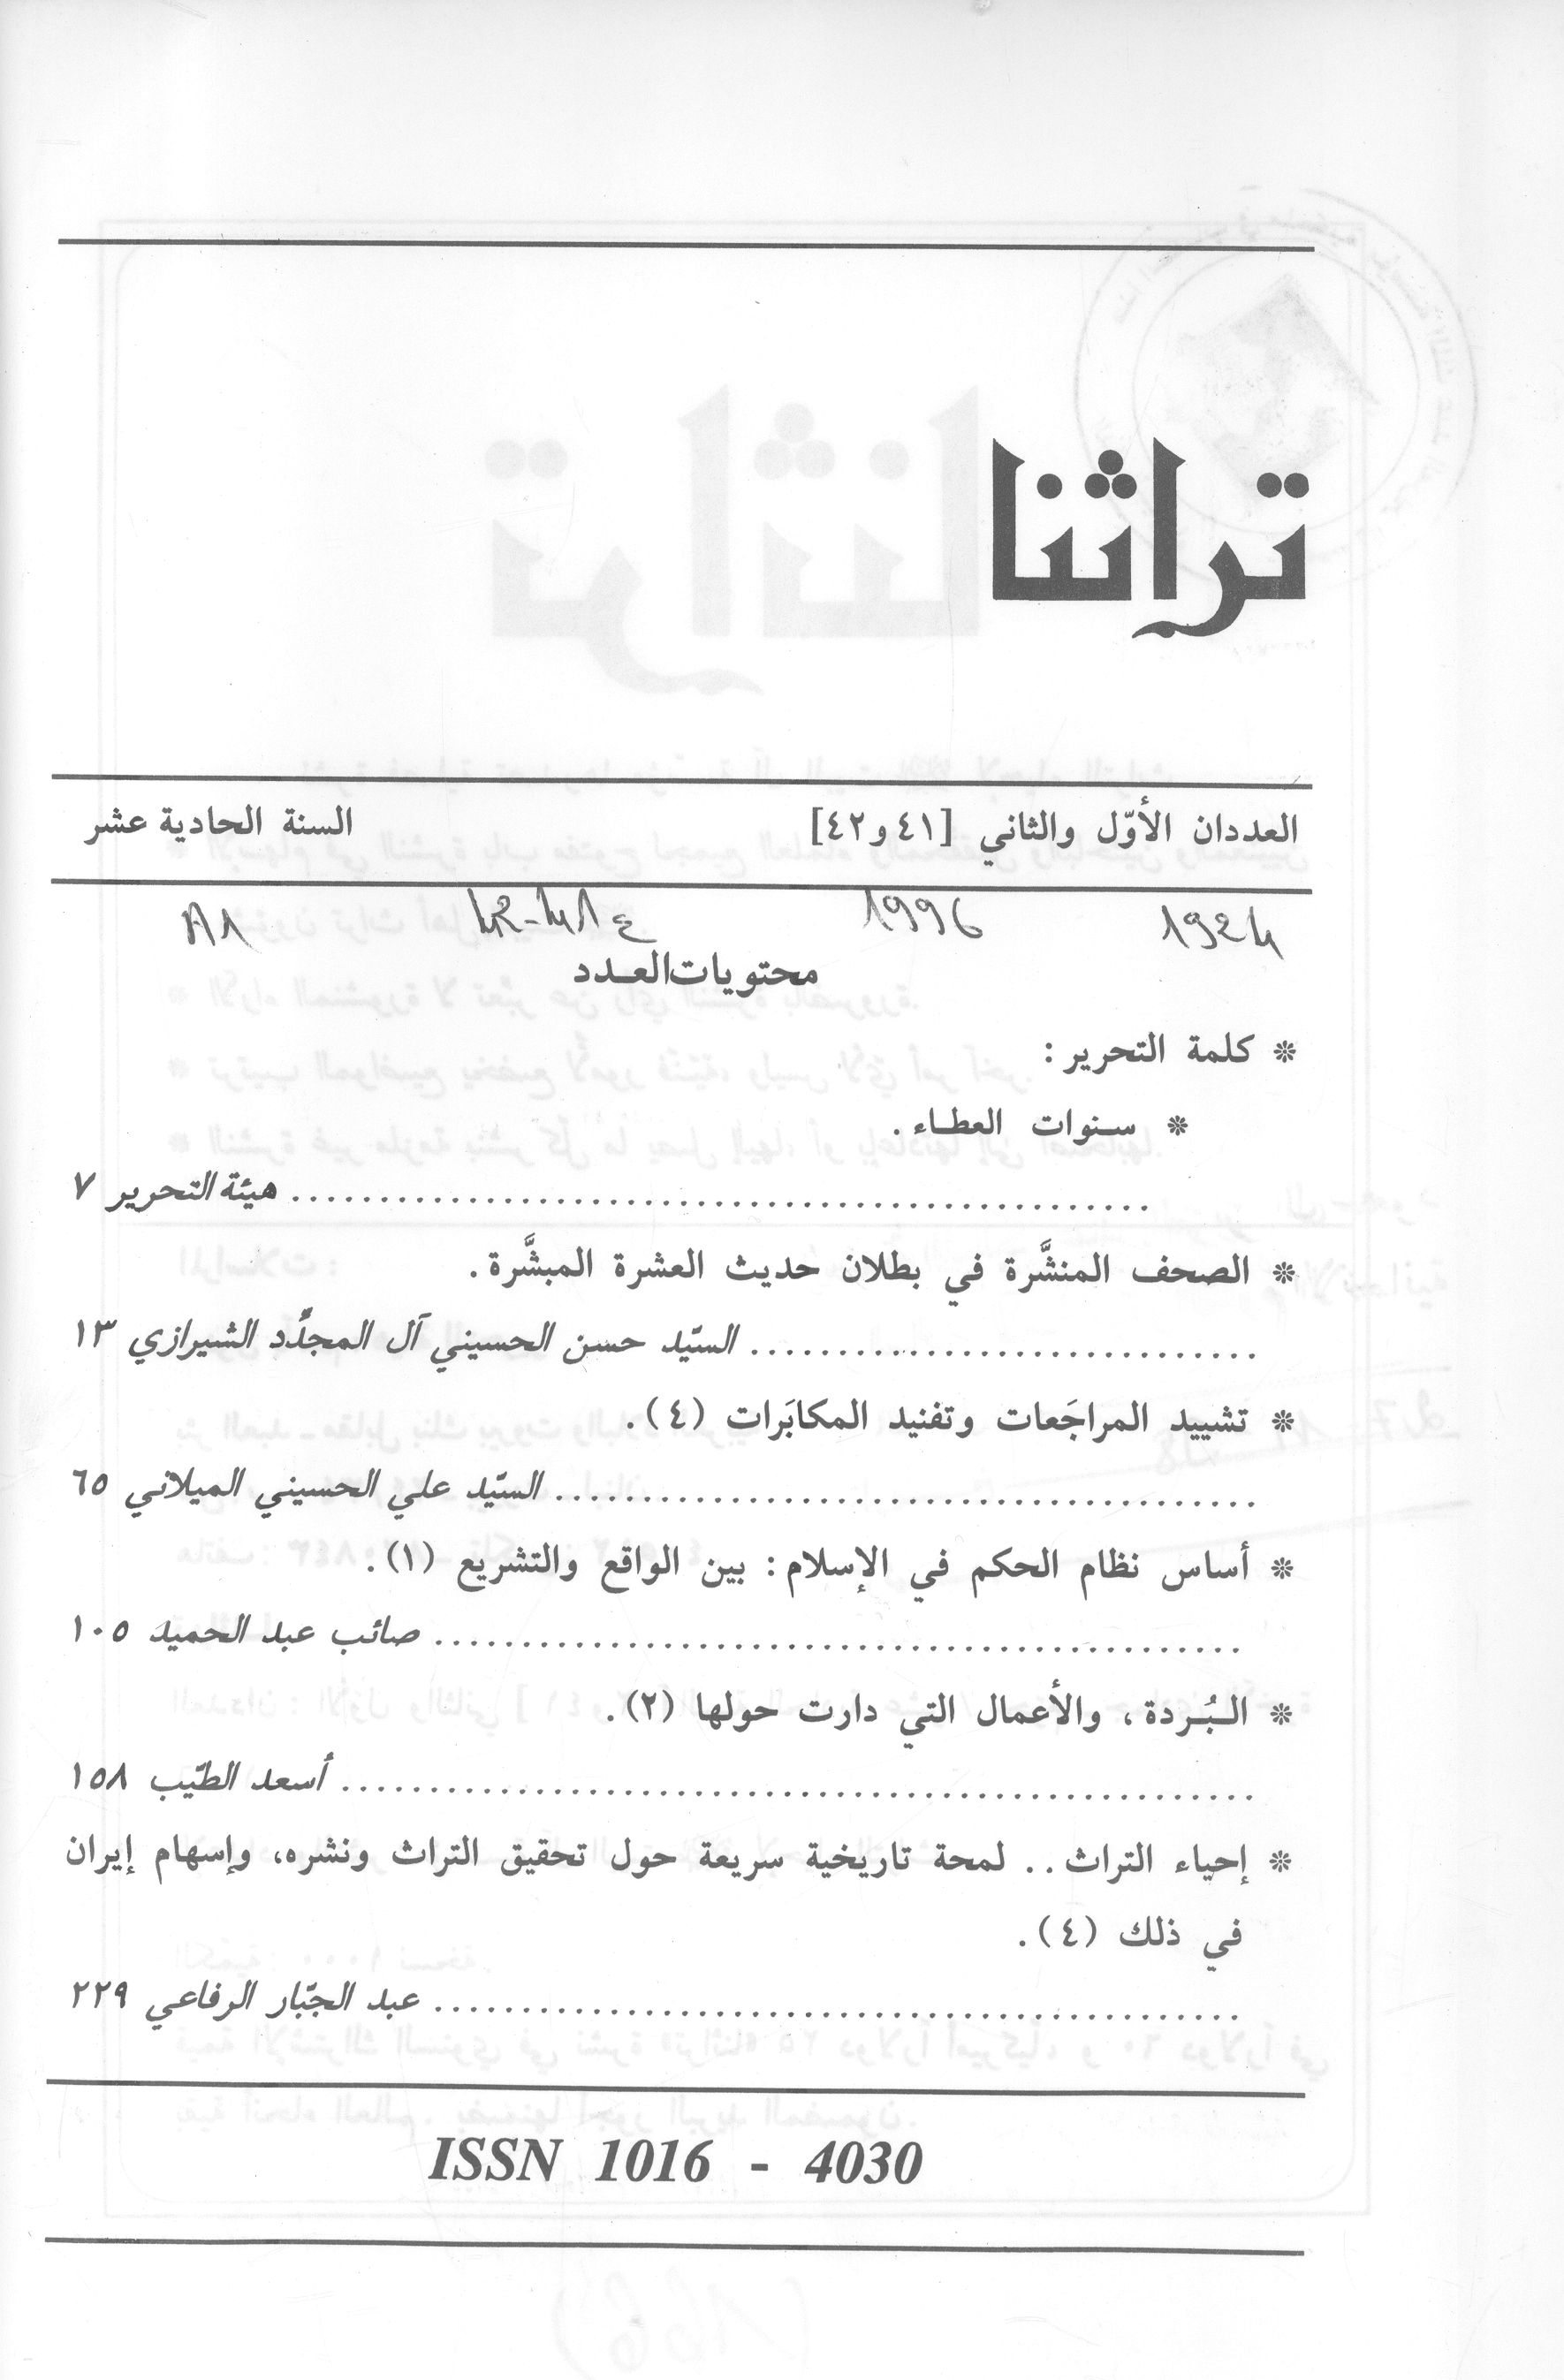 تراثنا
العددان الأوّل والثاني [٤١ و٤٢] السنة الحادية عشر
1996
محتويات العدد
* كلمة التحرير :
* سنوات العطاء .
هيئة التحرير ٧
* الصحف المنشَّرة في بطلان حديث العشرة المبشَّرة .
السيّد حسن الحسيني آل المجدِّد الشيرازي ١٣
* تشييد المراجَعات وتفنيد المكابَرات (٤) .
السيّد علي الحسيني الميلاني ٦٥
* أساس نظام الحكم في الإسلام : بين الواقع والتشريع (١) .
صائب عبد الحميد ١٠٥
* البُردة ، والأعمال التي دارت حولها (٢) .
أسعد الطيّب ١٥٨
* إحياء التراث .. لمحة تاريخية سريعة حول تحقيق التراث ونشره، وإسهام إيران
في ذلك (٤) .
عبد الجبّار الرفاعي ٢٢٩
ISSN 1016 - 4030